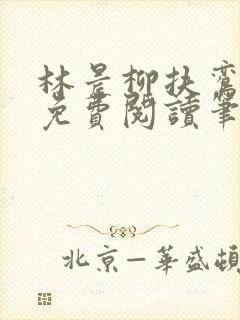 林是柳扶鸞
免費閱讀筆
北京—華盛頓